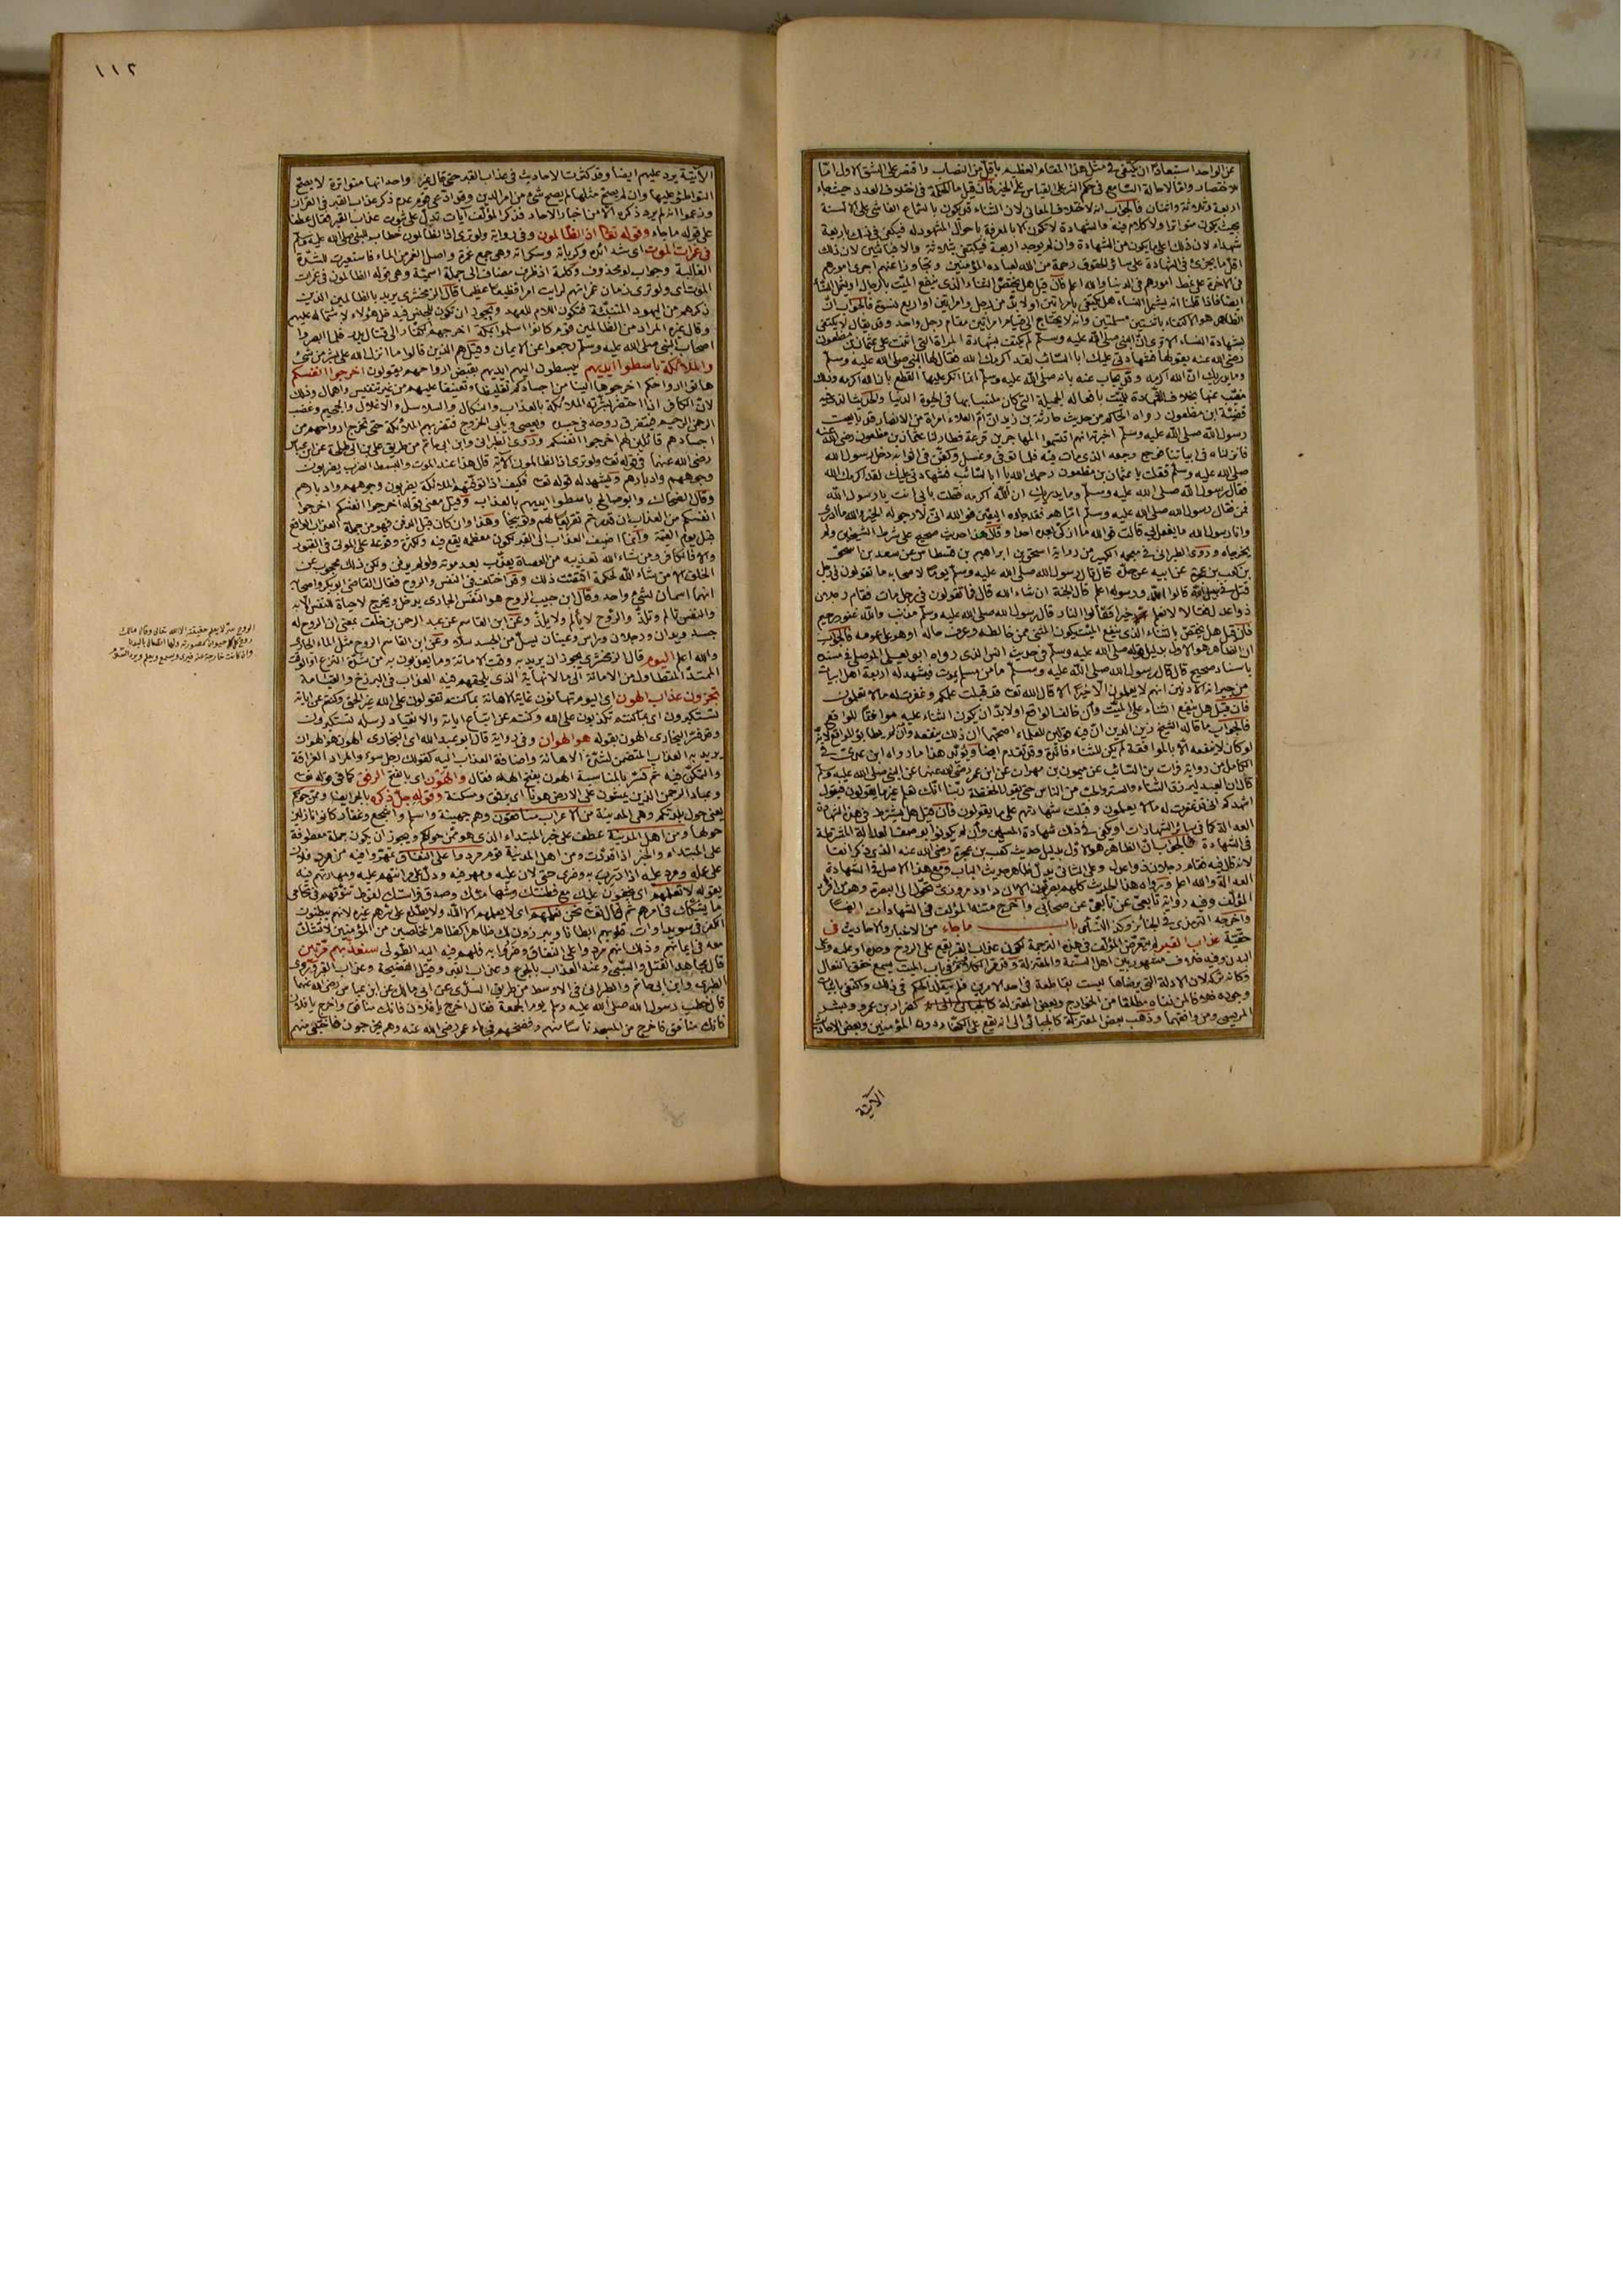 عن الواحد استبعادا ان يكتفى في مثل هذا المقام العظيم باقل من النصاب واقتصر على الشق الاول اما
للاختصار واما لاحالة السامع في حكم الشر على القياس على الخير فان قيل ما الحكمة في اختلاف العدد حيث جاء
اربعة وثلاثة واثنان فالجواب انه لاختلاف المعاني لان الثناء قد يكون بالسماع الفاشي على الالسنة
بحيث يكون متواترا ولا كلام فيه والشهادة لا تكون الا بالمعرفة باحوال المشهود له فيكفي في ذلك اربعة
شهداء لان ذلك اعلى ما يكون من الشهادة وان لم يوجد اربعة فيكتفى بثلاثة والا فباثنين لان ذلك
اقل ما يجزئ في الشهادة على سائر الحقوق رحمة من الله لعباده المؤمنين وتجاوزا عنهم اجرى امورهم
في الآخرة على نمط امورهم في الدنيا والله اعلم فان قيل هل يختص الثناء الذي ينفع الميت بالرجال او يشمل النساء
ايضا فاذا قلنا انه يشمل النساء هل يكتفى بامراتين او لا بد من رجل وامراتين او اربع نسوة فالجواب ان
الظاهر هو الاكتفاء باثنتين مسلمتين وانه لا يحتاج الى قيام امراتين مقام رجل واحد وقد يقال لا يكتفى
بشهادة النساء الا ترى ان النبي صلى الله عليه وسلم لم يكتف بشهادة المراة التي اثنت على عثمان بن مظعون
رضي الله عنه بقولها فشهادتي عليك ابا السائب لقد اكرمك الله فقال لها النبي صلى الله عليه وسلم
وما يدريك ان الله اكرمه وقد يجاب عنه بانه صلى الله عليه وسلم انما انكر عليها القطع بان الله اكرمه وذلك
مغيب عنها بخلاف الشهادة للميت بافعاله الجميلة التي كان ملتبسا بها في الحيوة الدنيا والحديث الذي فيه
قضية ابن مظعون رواه الحاكم من حديث خارجة بن زيد ان ام العلاء امراة من الانصار قد بايعت
رسول الله صلى الله عليه وسلم اخبرته انهم اقتسموا المهاجرين قرعة فطار لنا عثمان بن مظعون رضي الله عنه
فانزلناه في ابياتنا فوجع وجعه الذي مات فيه فلما توفي وغسل وكفن في اثوابه دخل رسول الله
صلى الله عليه وسلم فقلت يا عثمان بن مظعون رحمك الله يا ابا السائب فشهادتي عليك لقد اكرمك الله
فقال رسول الله صلى الله عليه وسلم وما يدريك ان الله اكرمه فقلت بابي انت يا رسول الله
فمن فقال رسول الله صلى الله عليه وسلم اما هو فقد جاءه اليقين فوالله اني لارجو له الخير والله ما ادري
وانا رسول الله ما يفعل بي قالت فوالله ما ازكي بعده احدا وقال هذا حديث صحيح على شرط الشيخين ولم
يخرجاه وروى الطبراني في معجمه الكبير من رواية اسحق بن ابراهيم بن قسطاس عن سعد بن اسحق
بن كعب بن عجرة عن ابيه عن جده قال قال رسول الله صلى الله عليه وسلم يوما لاصحابه ما تقولون في رجل
قتل في سبيل الله قالوا الله ورسوله اعلم قال الجنة ان شاء الله قال فما تقولون في رجل مات فقام رجلان
ذوا عدل فقالا لا نعلم الا خيرا فقالوا النار قال رسول الله صلى الله عليه وسلم مذنب والله غفور رحيم
فان قيل هل يختص بالثناء الذي ينفع الميت بكون المثني ممن خالطه وعرف حاله او هو على عمومه فالجواب
ان الظاهر هو الاول بدليل قوله صلى الله عليه وسلم في حديث انس الذي رواه ابو يعلى الموصلي في مسنده
باسناد صحيح قال قال رسول الله صلى الله عليه وسلم ما من مسلم يموت فيشهد له اربعة اهل ابيات
من جيرانه الادنين انهم لا يعلمون الا خيرا الا قال الله تعالى قد قبلت علمكم وغفرت له ما لا تعلمون
فان قيل هل ينفع الثناء على الميت وان خالف الواقع او لا بد ان يكون الثناء عليه موافقا للواقع
فالجواب ما قاله الشيخ زين الدين ان فيه قولين للعلماء اصحهما ان ذلك ينفعه وان لم يطابق الواقع لانه
لو كان لا ينفعه الا بالموافقة لم يكن للثناء فائدة وقد تقدم ايضا ويؤيد هذا ما رواه ابن عدي في
الكامل من رواية فرات بن السائب عن ميمون بن مهران عن ابن عمر رضي الله عنهما عن النبي صلى الله عليه وسلم
قال ان العبد ليرزق الثناء والستر والحب من الناس حتى يقول الحفظة ربنا انك تعلم غير ما يقولون فيقول
اشهدكم اني قد غفرت له ما لا يعلمون وقبلت شهادتهم على ما يقولون فان قيل هل يشترط في هذه الشهادة
العدالة كما في سائر الشهادات او يكفي في ذلك شهادة المسلمين وان لم يكونوا بوصف العدالة المشترطة
في الشهادة فالجواب ان الظاهر هو الاول بدليل حديث كعب بن عجرة رضي الله عنه الذي ذكر انفا
لانه قال فيه فقام رجلان ذوا عدل وعلى الثاني يدل ظاهر حديث الباب ومع هذا الاصل في الشهادة
العدالة والله اعلم ورواة هذا الحديث كلهم بصريون الا ان داود مروزي تحول الى البصرة وهو من افراد
المؤلف وفيه رواية تابعي عن تابعي عن صحابي واخرج متنه المؤلف في الشهادات ايضا
واخرجه الترمذي في الجنائز وكذا النسائي باب ما جاء من الاخبار والاحاديث في
حقية عذاب القبر لم يتعرض المؤلف في هذه الترجمة لكون عذاب القبر يقع على الروح وحده او عليه وعلى
البدن وفيه خلاف مشهور بين اهل السنة والمعتزلة وقد مر الكلام فيه في باب الميت يسمع خفق النعال
وكانه تركه لان الادلة التي يرضاها ليست بقاطعة في احد الامرين فلم يتقلد الحكم في ذلك واكتفى باثبات
وجوده خلافا لمن نفاه مطلقا من الخوارج وبعض المعتزلة كضرار بن عمرو وبشر
المريسي ومن وافقهما وذهب بعض المعتزلة كالجبائي الى انه يقع على الكفار دون المؤمنين وبعض الاحاديث
الآتية
١١٢
الآتية يرد عليهم ايضا وقد كثرت الاحاديث في عذاب القبر حتى قال غير واحد انها متواترة لا يصح
التواطئ عليها وان لم يصح مثلها لم يصح شئ من امر الدين وقد ادعى قوم عدم ذكر عذاب القبر في القران
وزعموا انه لم يرد ذكره الا من اخبار الاحاد فذكر المؤلف آيات تدل على ثبوت عذاب القبر فقال عطفا
على قوله ما جاء وقوله تعالى اذ الظالمون وفي رواية ولو ترى اذ الظالمون خطاب للنبي صلى الله عليه وسلم
في غمرات الموت اى شدائده وكرباته وسكراته وهي جمع غمرة واصل الغمر من الماء فاستعيرت للشدة
الغالبة وجواب لو محذوف وكلمة اذ ظرف مضاف الى جملة اسمية وهي قوله الظالمون في غمرات
الموت اى ولو ترى زمان غمراتهم لرايت امرا فظيعا عظيما قال الزمخشري يريد بالظالمين الذين
ذكرهم من اليهود المتنبئة فتكون اللام للعهد ويجوز ان تكون للجنس فيدخل هؤلاء لاشتماله عليهم
وقال غيره المراد من الظالمين قوم كانوا اسلموا بمكة اخرجهم الكفار الى قتال بدر فلما ابصروا
اصحاب النبي صلى الله عليه وسلم رجعوا عن الايمان وقيل هم الذين قالوا ما انزل الله على بشر من شئ
والملائكة باسطوا ايديهم يبسطون اليهم ايديهم بقبض ارواحهم يقولون اخرجوا انفسكم
هاتوا ارواحكم اخرجوها الينا من اجسادكم تغليظا وتعنيفا عليهم من غير تنفيس وامهال وذلك
لان الكافر اذا احتضر بشرته الملائكة بالعذاب والنكال والسلاسل والاغلال والجحيم وغضب
الرحمن الرحيم فتتفرق روحه في جسده وتعصي وتابى الخروج فتضربهم الملائكة حتى تخرج ارواحهم من
اجسادهم قائلين لهم اخرجوا انفسكم وروى الطبراني وابن ابي حاتم من طريق علي بن ابي طلحة عن ابن عباس
رضي الله عنهما في قوله تعالى ولو ترى اذ الظالمون الآية قال هذا عند الموت والبسط الضرب يضربون
وجوههم وادبارهم ويشهد له قوله تعالى فكيف اذا توفتهم الملائكة يضربون وجوههم وادبارهم
وقال الضحاك وابو صالح باسطوا ايديهم بالعذاب وقيل معنى قوله اخرجوا انفسكم اخرجوا
انفسكم من العذاب ان قدرتم تقريعا لهم وتوبيخا وهذا وان كان قبل الدفن فهو من جملة العذاب الواقع
قبل يوم القيمة وانما اضيف العذاب الى القبر لكون معظمه يقع فيه ولكثرة وقوعه على الموتى في القبور
والا فالكافر ومن شاء الله تعذيبه من العصاة يعذب بعد موته ولو لم يدفن ولكن ذلك محجوب عن
الخلق الا من شاء الله لحكمة اقتضت ذلك وقد اختلف في النفس والروح فقال القاضي ابو بكر واصحابه
انهما اسمان لشئ واحد وقال ابن حبيب الروح هو النفس الجارى يدخل ويخرج لا حياة للنفس الا به
والنفس تالم وتلذ والروح لا يالم ولا يلذ وعن ابن القاسم عن عبد الرحمن بن خلف بمعنى ان الروح له
جسد ويدان ورجلان وراس وعينان يسل من الجسد سلا وعن ابن القاسم الروح مثل الماء الجارى
والله اعلم اليوم قال الزمخشري يجوز ان يريد به وقت الاماتة وما يعذبون به من شدة النزع او الوقت
الممتد المتطاول من الاماتة الى ما لا نهاية الذي يلحقهم فيه العذاب في البرزخ والقيامة
تجزون عذاب الهون اى اليوم تهانون غاية الاهانة بما كنتم تقولون على الله غير الحق وكنتم عن اياته
تستكبرون اى بما كنتم تكذبون على الله وكنتم عن اتباع اياته والانقياد لرسله تستكبرون
وقد فسر البخاري الهون بقوله هو الهوان وفي رواية قال ابو عبد الله اى البخاري الهون هو الهوان
يريد به العذاب المتضمن لشدة الاهانة واضافة العذاب اليه كقولك رجل سوء والمراد العراقة
والتمكن فيه ثم فسر بالمناسبة الهون بفتح الهاء فقال والهون اى بالفتح الرفق كما في قوله تعالى
وعباد الرحمن الذين يمشون على الارض هونا اى برفق وسكينة وقوله جل ذكره بالجر ايضا وممن حولكم
يعني حول بلدتكم وهي المدينة من الاعراب منافقون وهم جهينة واسلم واشجع وغفار كانوا نازلين
حولها ومن اهل المدينة عطف على خبر المبتداء الذي هو ممن حولكم ويجوز ان يكون جملة معطوفة
على المبتداء والخبر اذا قدرت ومن اهل المدينة قوم مردوا على النفاق تمهروا فيه من مرن فلان
على عمله ومرد عليه اذا تدرب به وضرى حتى لان عليه ومهر فيه ودل على مرانتهم عليه ومهارتهم فيه
بقوله لا تعلمهم اى يخفون عليك مع فطنتك وشهامتك وصدق فراستك لفرط تنوقهم في تحامي
ما يشكك في امرهم ثم قال تعالى نحن نعلمهم اى لا يعلمهم الا الله ولا يطلع على سرهم غيره لانهم يبطنون
الكفر في سويداوات قلوبهم ابطانا ويبرزون لك ظاهرا كظاهر المخلصين من المؤمنين لا تشك
معه في ايمانهم وذلك انهم مردوا على النفاق وضروا به فلهم فيه اليد الطولى سنعذبهم مرتين
قال مجاهد القتل والسبي وعنه العذاب بالجوع وعذاب القبر وقيل الفضيحة وعذاب القبر وروى
الطبري وابن ابي حاتم والطبراني في الاوسط من طريق السدي عن ابي مالك عن ابن عباس رضي الله عنهما
قال خطب رسول الله صلى الله عليه وسلم يوم الجمعة فقال اخرج يا فلان فانك منافق واخرج يا فلان
فانك منافق فاخرج من المسجد ناسا منهم وفضحهم فجاء عمر رضي الله عنه وهم يخرجون فاختبى منهم
الروح لا يعلم حقيقته الا الله تعالى وقال مالك